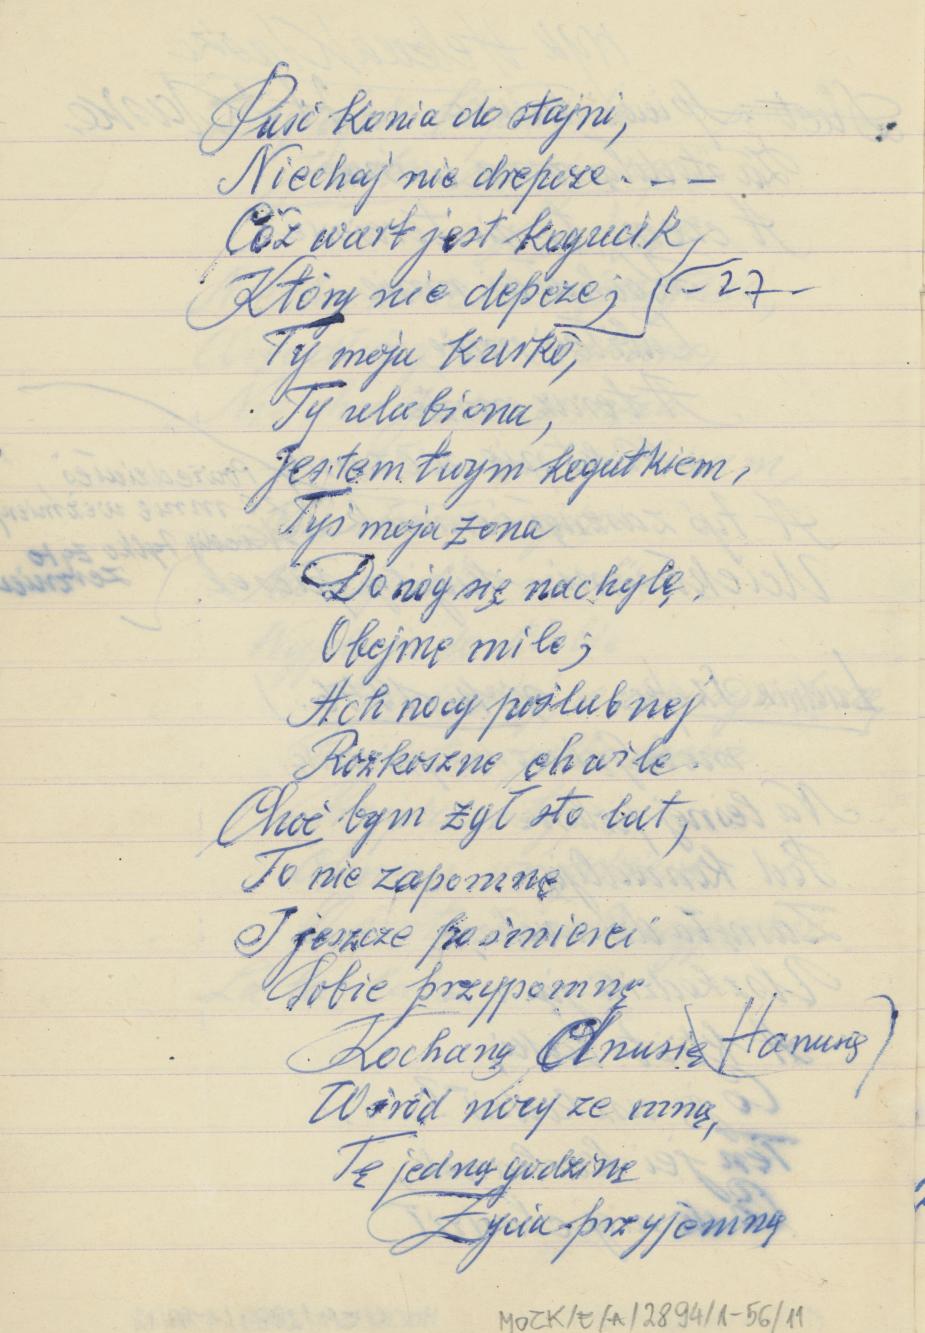 Puść konia do stajni,
Niechaj nie drepcze. - —
Cóż wart jest kogucik,
Który nie depcze; —27—
Ty moja Kurko,
Ty ulubiona,
jestem twym kogutkiem,
Tyś moja żona
Do nóg się nachylę,
Obejmę mile;
Ach nocy poślubnej
Rozkoszne chwile
Choć bym żył sto lat,
To nie zapomnę
I jeszcze po śmierci
Sobie przypomnę
Kochaną Anusię (Hanusię)
Wśród nocy ze mną,
Tę jedną godzinę
Życia przyjemną
MOCK/E/A/2894/1-56/11